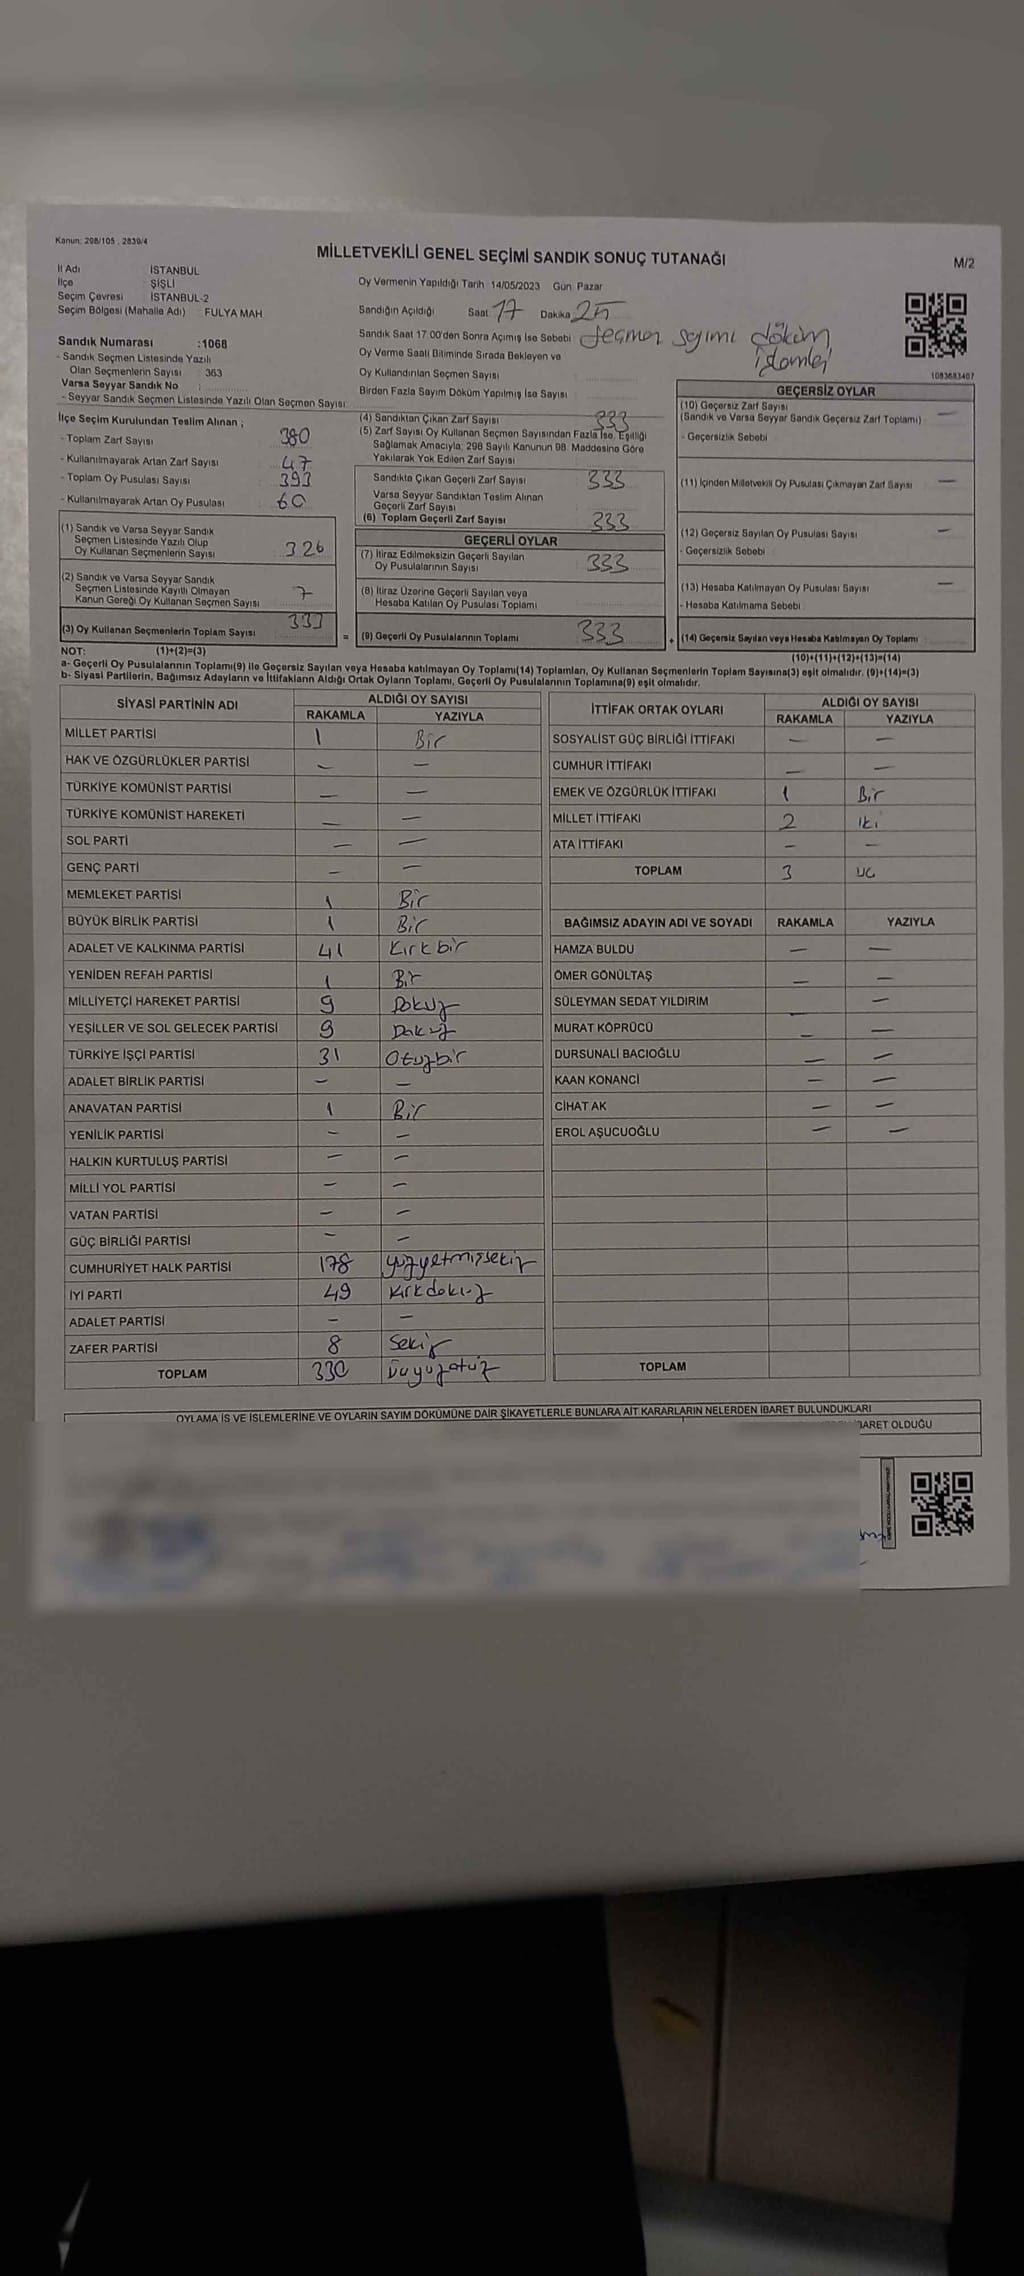 Kanun: 298/105 , 2839/4
MİLLETVEKİLİ GENEL SEÇİMİ SANDIK SONUÇ TUTANAĞI
M/2
İl Adı İSTANBUL
İlçe ŞİŞLİ
Seçim Çevresi İSTANBUL-2
Seçim Bölgesi (Mahalle Adı) FULYA MAH
Oy Vermenin Yapıldığı Tarih 14/05/2023 Gün: Pazar
Sandığın Açıldığı Saat 17 Dakika 25
Sandık Saat 17:00'den Sonra Açımış İse Sebebi Seçmen sayımı döküm
işlemleri
Oy Verme Saati Bitiminde Sırada Bekleyen ve
Oy Kullandırılan Seçmen Sayısı
Birden Fazla Sayım Döküm Yapılmış İse Sayısı
1083683407
Sandık Numarası :1068
- Sandık Seçmen Listesinde Yazılı
Olan Seçmenlerin Sayısı : 363
Varsa Seyyar Sandık No :
- Seyyar Sandık Seçmen Listesinde Yazılı Olan Seçmen Sayısı:
İlçe Seçim Kurulundan Teslim Alınan ;
- Toplam Zarf Sayısı 380
- Kullanılmayarak Artan Zarf Sayısı 47
- Toplam Oy Pusulası Sayısı 393
- Kullanılmayarak Artan Oy Pusulası 60
(1) Sandık ve Varsa Seyyar Sandık
Seçmen Listesinde Yazılı Olup
Oy Kullanan Seçmenlerin Sayısı 326
(2) Sandık ve Varsa Seyyar Sandık
Seçmen Listesinde Kayıtlı Olmayan
Kanun Gereği Oy Kullanan Seçmen Sayısı 7
(3) Oy Kullanan Seçmenlerin Toplam Sayısı 333 =
(4) Sandıktan Çıkan Zarf Sayısı 333
(5) Zarf Sayısı Oy Kullanan Seçmen Sayısından Fazla İse, Eşitliği
Sağlamak Amacıyla; 298 Sayılı Kanunun 98. Maddesine Göre
Yakılarak Yok Edilen Zarf Sayısı
Sandıkta Çıkan Geçerli Zarf Sayısı 333
Varsa Seyyar Sandıktan Teslim Alınan
Geçerli Zarf Sayısı
(6) Toplam Geçerli Zarf Sayısı 333
GEÇERLİ OYLAR
(7) İtiraz Edilmeksizin Geçerli Sayılan
Oy Pusulalarının Sayısı 333
(8) İtiraz Üzerine Geçerli Sayılan veya
Hesaba Katılan Oy Pusulası Toplamı
(9) Geçerli Oy Pusulalarının Toplamı 333 +
GEÇERSİZ OYLAR
(10) Geçersiz Zarf Sayısı
(Sandık ve Varsa Seyyar Sandık Geçersiz Zarf Toplamı) : —
- Geçersizlik Sebebi
(11) İçinden Milletvekili Oy Pusulası Çıkmayan Zarf Sayısı —
(12) Geçersiz Sayılan Oy Pusulası Sayısı —
- Geçersizlik Sebebi
(13) Hesaba Katılmayan Oy Pusulası Sayısı —
- Hesaba Katılmama Sebebi
(14) Geçersiz Sayılan veya Hesaba Katılmayan Oy Toplamı
NOT: (1)+(2)=(3)
(10)+(11)+(12)+(13)=(14)
a- Geçerli Oy Pusulalarının Toplamı(9) ile Geçersiz Sayılan veya Hesaba katılmayan Oy Toplamı(14) Toplamları, Oy Kullanan Seçmenlerin Toplam Sayısına(3) eşit olmalıdır. (9)+(14)=(3)
b- Siyasi Partilerin, Bağımsız Adayların ve İttifakların Aldığı Ortak Oyların Toplamı, Geçerli Oy Pusulalarının Toplamına(9) eşit olmalıdır.
SİYASİ PARTİNİN ADI ALDIĞI OY SAYISI
RAKAMLA YAZIYLA
MİLLET PARTİSİ 1 Bir
HAK VE ÖZGÜRLÜKLER PARTİSİ — —
TÜRKİYE KOMÜNİST PARTİSİ — —
TÜRKİYE KOMÜNİST HAREKETİ — —
SOL PARTİ — —
GENÇ PARTİ — —
MEMLEKET PARTİSİ 1 Bir
BÜYÜK BİRLİK PARTİSİ 1 Bir
ADALET VE KALKINMA PARTİSİ 41 Kırkbir
YENİDEN REFAH PARTİSİ 1 Bir
MİLLİYETÇİ HAREKET PARTİSİ 9 Dokuz
YEŞİLLER VE SOL GELECEK PARTİSİ 9 Dokuz
TÜRKİYE İŞÇİ PARTİSİ 31 Otuzbir
ADALET BİRLİK PARTİSİ — —
ANAVATAN PARTİSİ 1 Bir
YENİLİK PARTİSİ — —
HALKIN KURTULUŞ PARTİSİ — —
MİLLİ YOL PARTİSİ — —
VATAN PARTİSİ — —
GÜÇ BİRLİĞİ PARTİSİ — —
CUMHURİYET HALK PARTİSİ 178 yüzyetmişsekiz
İYİ PARTİ 49 Kırkdokuz
ADALET PARTİSİ — —
ZAFER PARTİSİ 8 Sekiz
TOPLAM 330 Üçyüzotuz
İTTİFAK ORTAK OYLARI ALDIĞI OY SAYISI
RAKAMLA YAZIYLA
SOSYALİST GÜÇ BİRLİĞİ İTTİFAKI — —
CUMHUR İTTİFAKI — —
EMEK VE ÖZGÜRLÜK İTTİFAKI 1 Bir
MİLLET İTTİFAKI 2 iki
ATA İTTİFAKI — —
TOPLAM 3 üç
BAĞIMSIZ ADAYIN ADI VE SOYADI RAKAMLA YAZIYLA
HAMZA BULDU — —
ÖMER GÖNÜLTAŞ — —
SÜLEYMAN SEDAT YILDIRIM — —
MURAT KÖPRÜCÜ — —
DURSUNALİ BACIOĞLU — —
KAAN KONANCİ — —
CİHAT AK — —
EROL AŞUCUOĞLU — —
TOPLAM
OYLAMA İŞ VE İŞLEMLERİNE VE OYLARIN SAYIM DÖKÜMÜNE DAİR ŞİKAYETLERLE BUNLARA AİT KARARLARIN NELERDEN İBARET BULUNDUKLARI
İBARET OLDUĞU